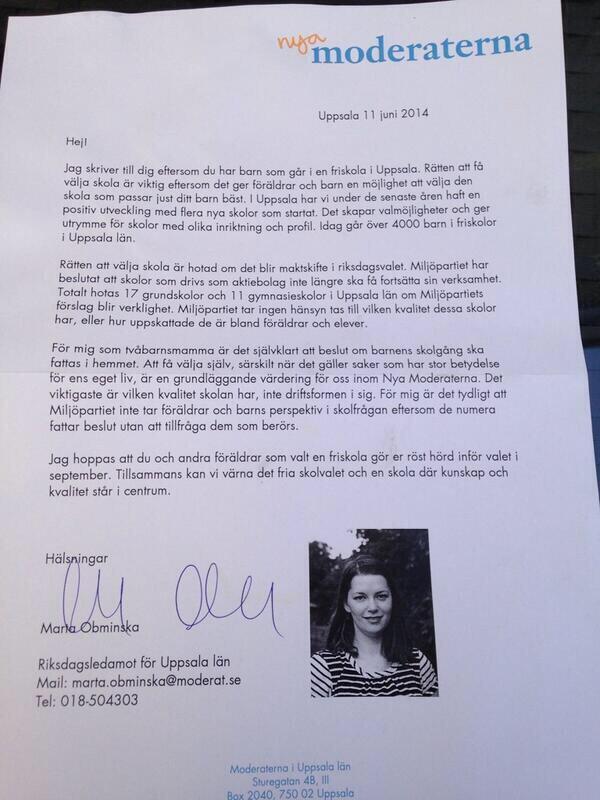 nya
moderaterna
Uppsala 11 juni 2014
Hej!
Jag skriver till dig eftersom du har barn som går i en friskola i Uppsala. Rätten att få
välja skola är viktig eftersom det ger föräldrar och barn en möjlighet att välja den
skola som passar just ditt barn bäst. I Uppsala har vi under de senaste åren haft en
positiv utveckling med flera nya skolor som startat. Det skapar valmöjligheter och ger
utrymme för skolor med olika inriktning och profil. Idag går över 4000 barn i friskolor
i Uppsala län.
Rätten att välja skola är hotad om det blir maktskifte i riksdagsvalet. Miljöpartiet har
beslutat att skolor som drivs som aktiebolag inte längre ska få fortsätta sin verksamhet.
Totalt hotas 17 grundskolor och 11 gymnasieskolor i Uppsala län om Miljöpartiets
förslag blir verklighet. Miljöpartiet tar ingen hänsyn tas till vilken kvalitet dessa skolor
har, eller hur uppskattade de är bland föräldrar och elever.
För mig som tvåbarnsmamma är det självklart att beslut om barnens skolgång ska
fattas i hemmet. Att få välja själv, särskilt när det gäller saker som har stor betydelse
för ens eget liv, är en grundläggande värdering för oss inom Nya Moderaterna. Det
viktigaste är vilken kvalitet skolan har, inte driftsformen i sig. För mig är det tydligt att
Miljöpartiet inte tar föräldrar och barns perspektiv i skolfrågan eftersom de numera
fattar beslut utan att tillfråga dem som berörs.
Jag hoppas att du och andra föräldrar som valt en friskola gör er röst hörd inför valet i
september. Tillsammans kan vi värna det fria skolvalet och en skola där kunskap och
kvalitet står i centrum.
Hälsningar
Marta Obminska
Riksdagsledamot för Uppsala län
Mail: marta.obminska@moderat.se
Tel: 018-504303
Moderaterna i Uppsala län
Sturegatan 4B, III
Box 2040, 750 02 Uppsala